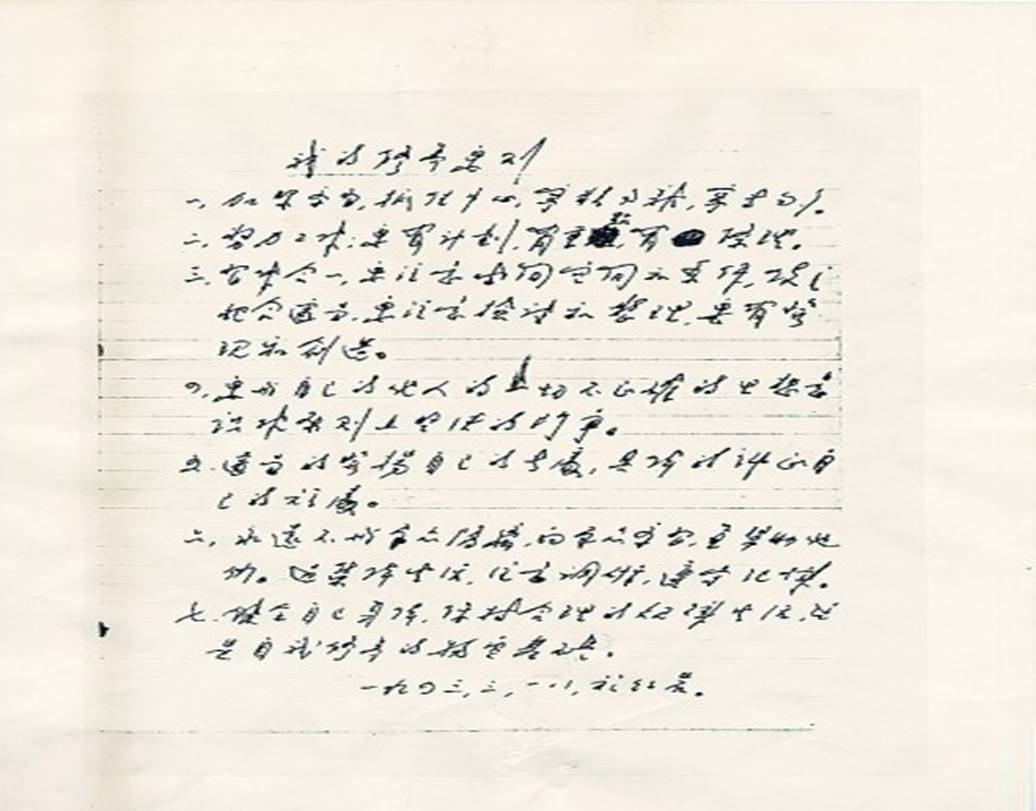 我的修养要则
一、加紧学习,抓住中心,宁精勿杂,宁专勿多。
二、努力工作:要有计划,有重点,有条理。
三、习作合一,要注意时间空间和条件,使之
配合适当,要注意检讨和整理,要有发
现和创造。
四、要与自己的他人的一切不正确的思想意
识作原则上坚决的斗争。
五、适当的发扬自己的长处,具体的纠正自
己的短处。
六、永远不与群众隔离,向群众学习,并帮助他
们。过集体生活,注意调研,遵守纪律。
七、健全自己身体,保持合理的规律生活,这
是自我修养的物质基础。
一九四三,三,一八,于红岩。